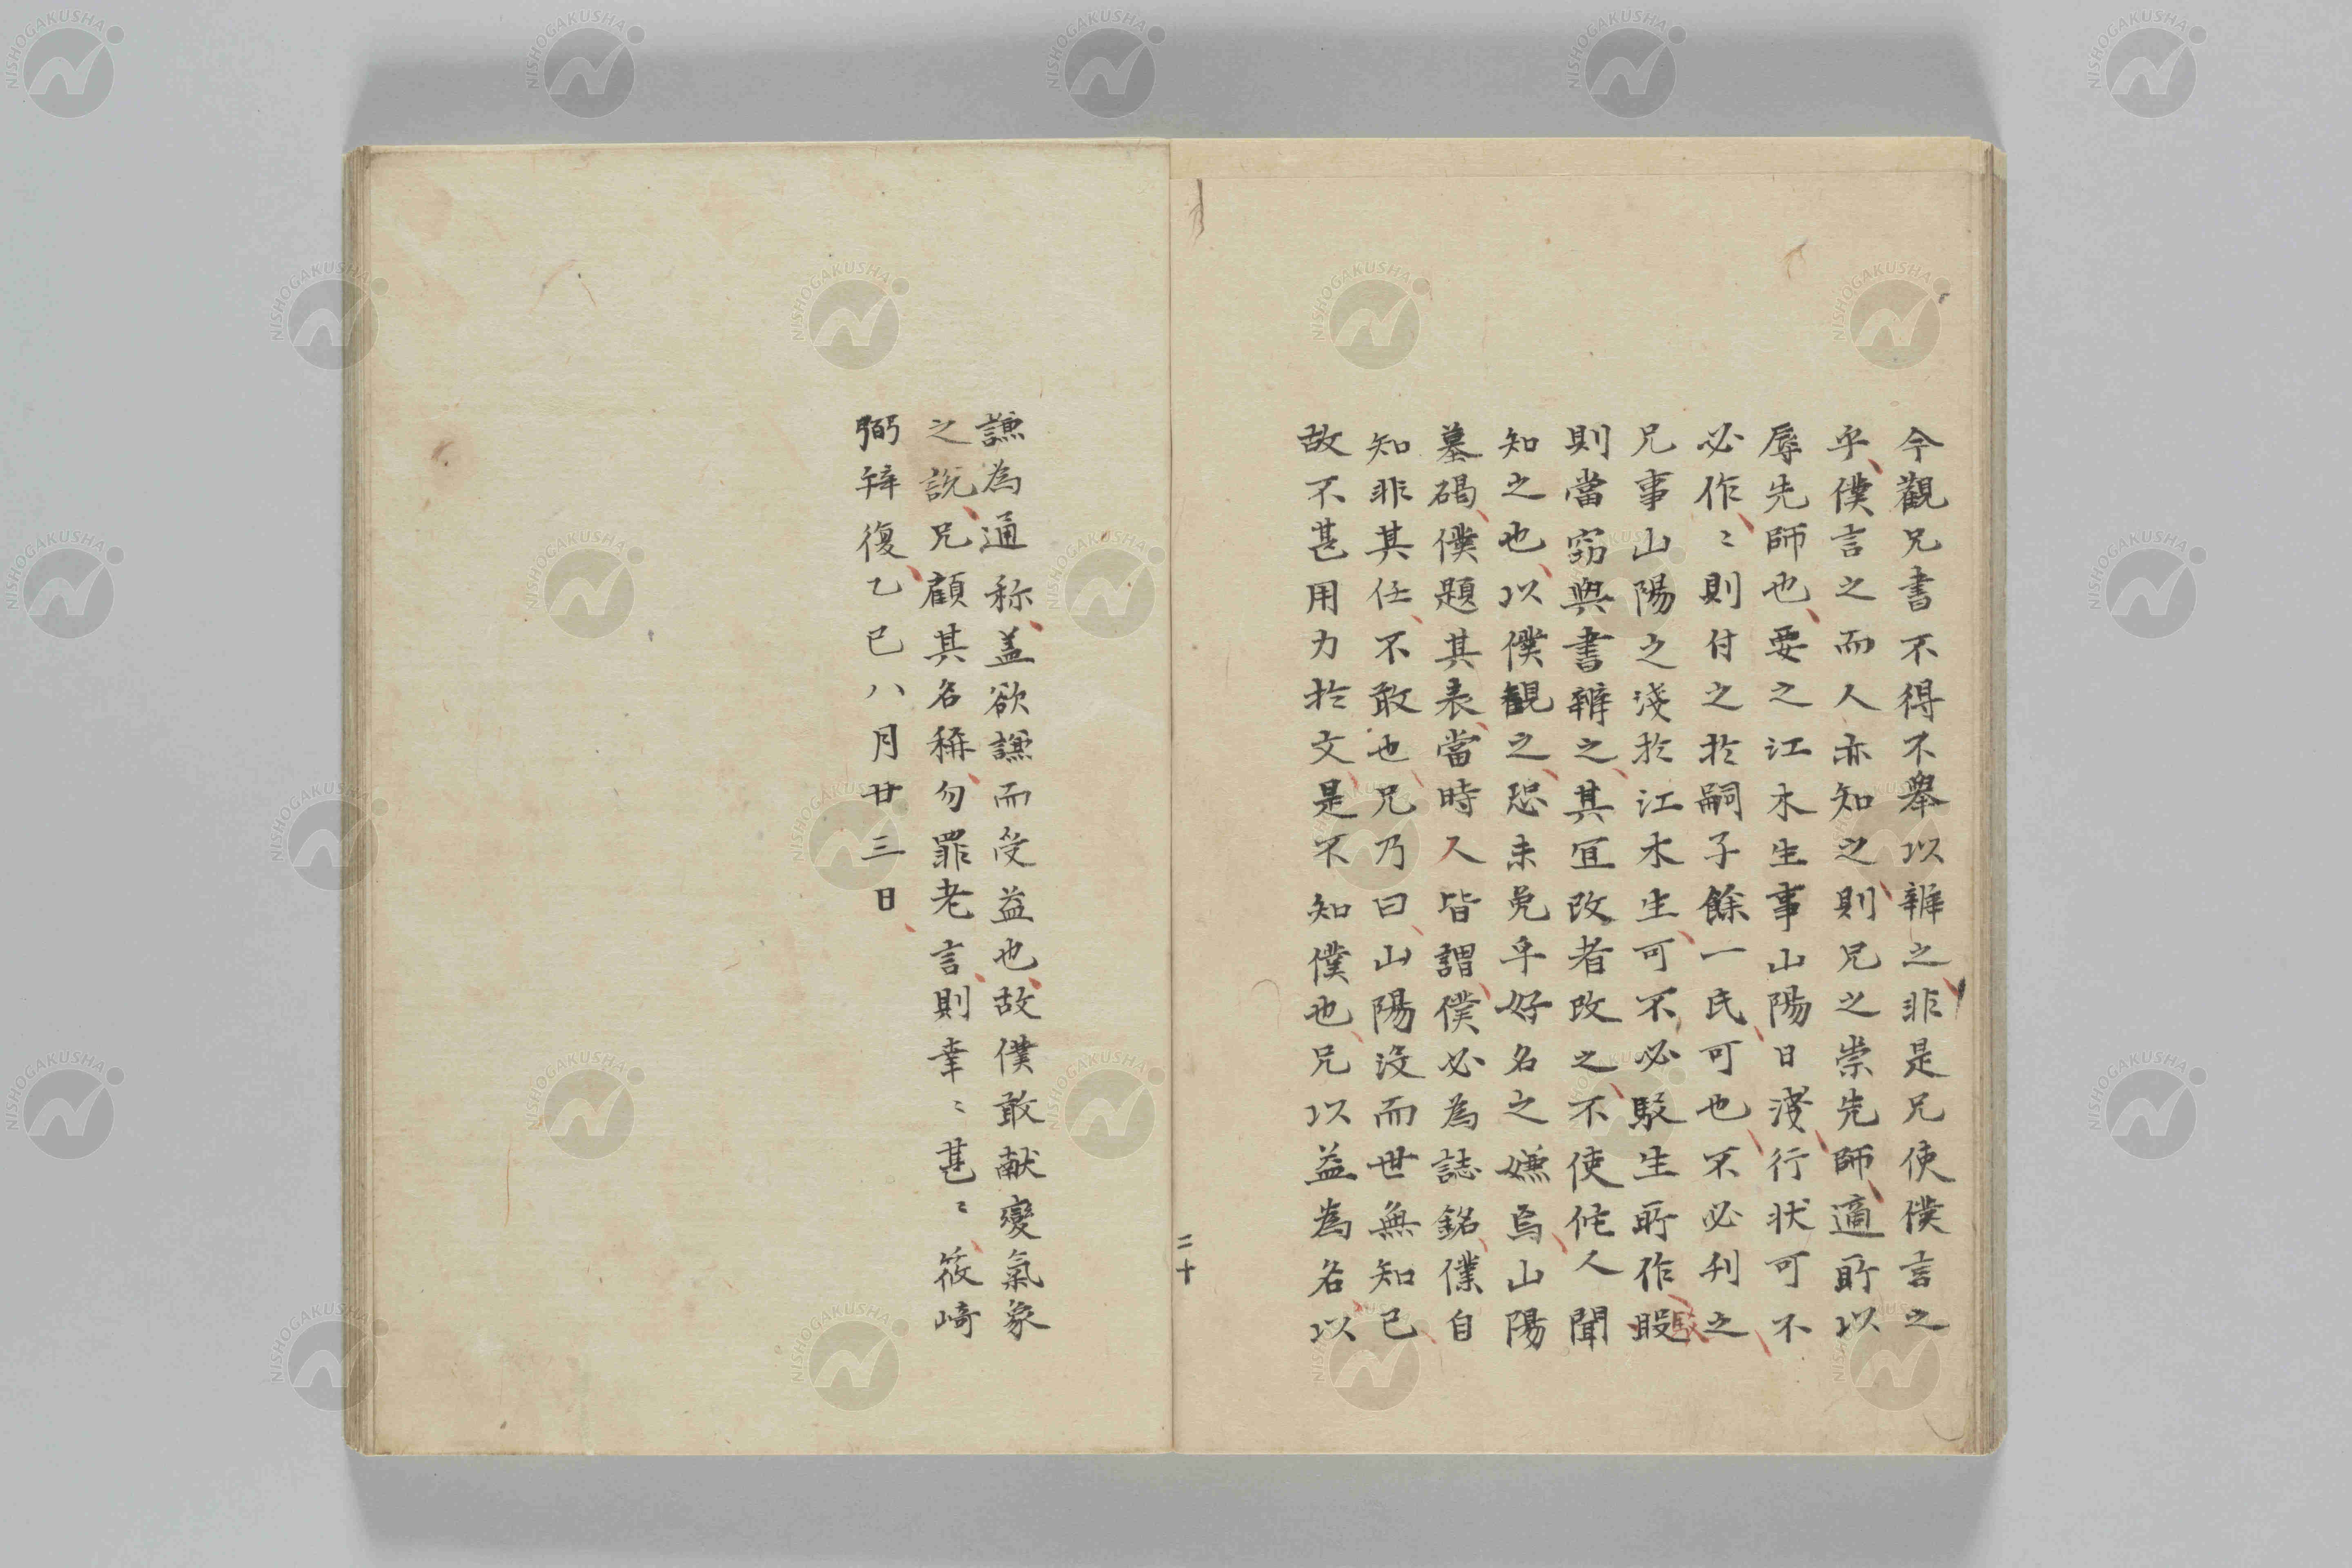 今觀兄書不得不舉以辨之非是兄使僕言之
乎僕言之而人亦知之則兄之崇先師適所以
辱先師也要之江木生事山陽日淺行狀可不
必作〻則付之於嗣子餘一民可也不必刊之
兄事山陽之淺於江木生可不必駁生所作
駁
則當窃與書辨之其宜改者改之不使佗人聞
知之也以僕観之恐未免乎好名之嫌烏山陽
墓碣僕題其表當時人皆謂僕必為誌銘僕自
知非其任不敢也兄乃曰山陽沒而世無知己
故不甚用力於文是不知僕也兄以益為名以
二十
謙為通称盖欲謙而受益也故僕敢献變氣象
之說兄顧其名稱勿罪老言則幸〻甚〻筱崎
弼拜復乙巳八月廿三日
NISHOGAKUSHA